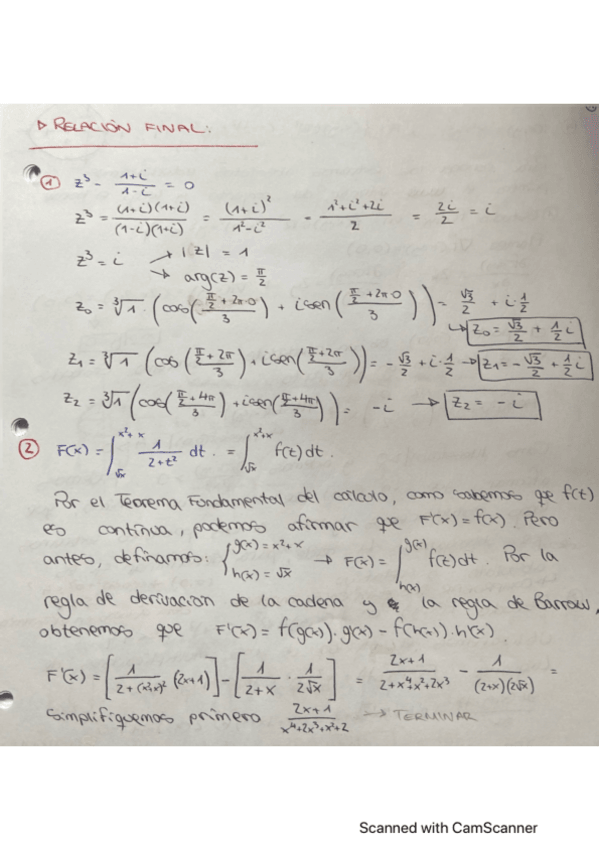 ▷ RELACIÓN FINAL:
① z³ - (1+i)/(1-i) = 0
z³ = (1+i)(1+i)/(1-i)(1+i) = (1+i)²/(1²-i²) = (1²+i²+2i)/2 = 2i/2 = i
z³ = i → |z| = 1
→ arg(z) = π/2
z₀ = ³√1 · (cos((π/2 + 2π·0)/3) + i sen((π/2 + 2π·0)/3)) = √3/2 + i·1/2
↳ z₀ = √3/2 + 1/2 i
z₁ = ³√1 (cos((π/2 + 2π)/3) + i sen((π/2 + 2π)/3)) = -√3/2 + i·1/2 → z₁ = -√3/2 + 1/2 i
z₂ = ³√1 (cos((π/2 + 4π)/3) + i sen((π/2 + 4π)/3)) = -i → z₂ = -i
② F(x) = ∫_{√x}^{x²+x} 1/(2+t²) dt. = ∫_{√x}^{x²+x} f(t) dt.
Por el Teorema Fundamental del cálculo, como sabemos que f(t)
es continua, podemos afirmar que F'(x) = f(x). Pero
antes, definamos: { g(x) = x²+x h(x) = √x → F(x) = ∫_{h(x)}^{g(x)} f(t) dt. Por la
regla de derivacion de la cadena y la regla de Barrow,
obtenemos que F'(x) = f(g(x)) · g'(x) - f(h(x)) · h'(x).
F'(x) = [1/(2+(x²+x)²) · (2x+1)] - [1/(2+x) · 1/(2√x)] = (2x+1)/(2+x⁴+x²+2x³) - 1/((2+x)(2√x)) =
simplifiquemos primero (2x+1)/(x⁴+2x³+x²+2) → TERMINAR
Scanned with CamScanner